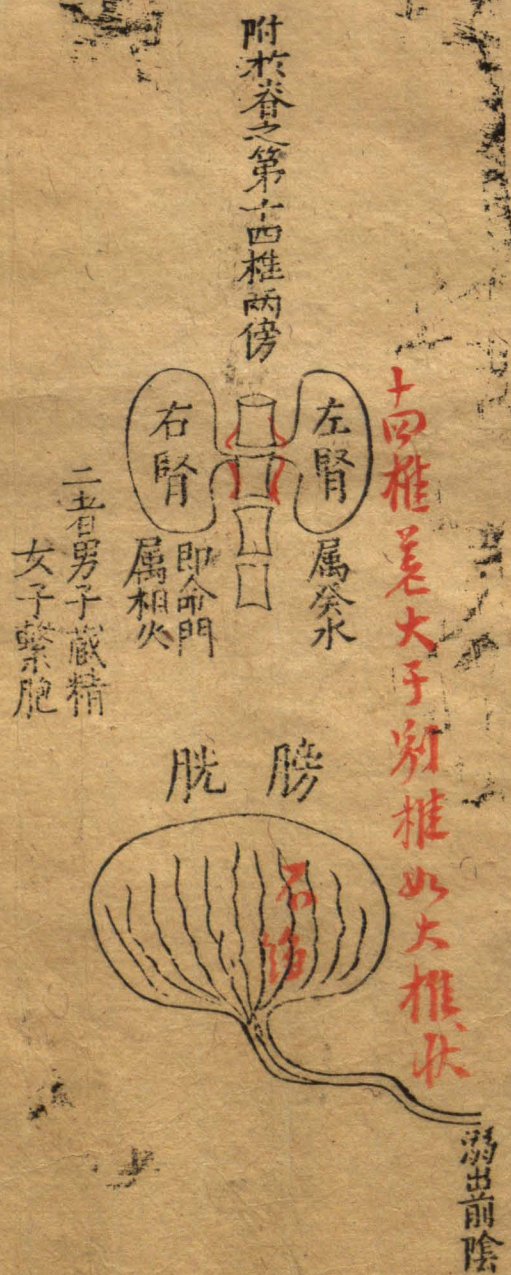 十四椎差大于別椎如大椎狀
附於脊之第十四椎兩傍
左腎
属癸水
右腎
即命門
属相火
二者男子藏精
女子繫胞
膀胱
溺出前陰